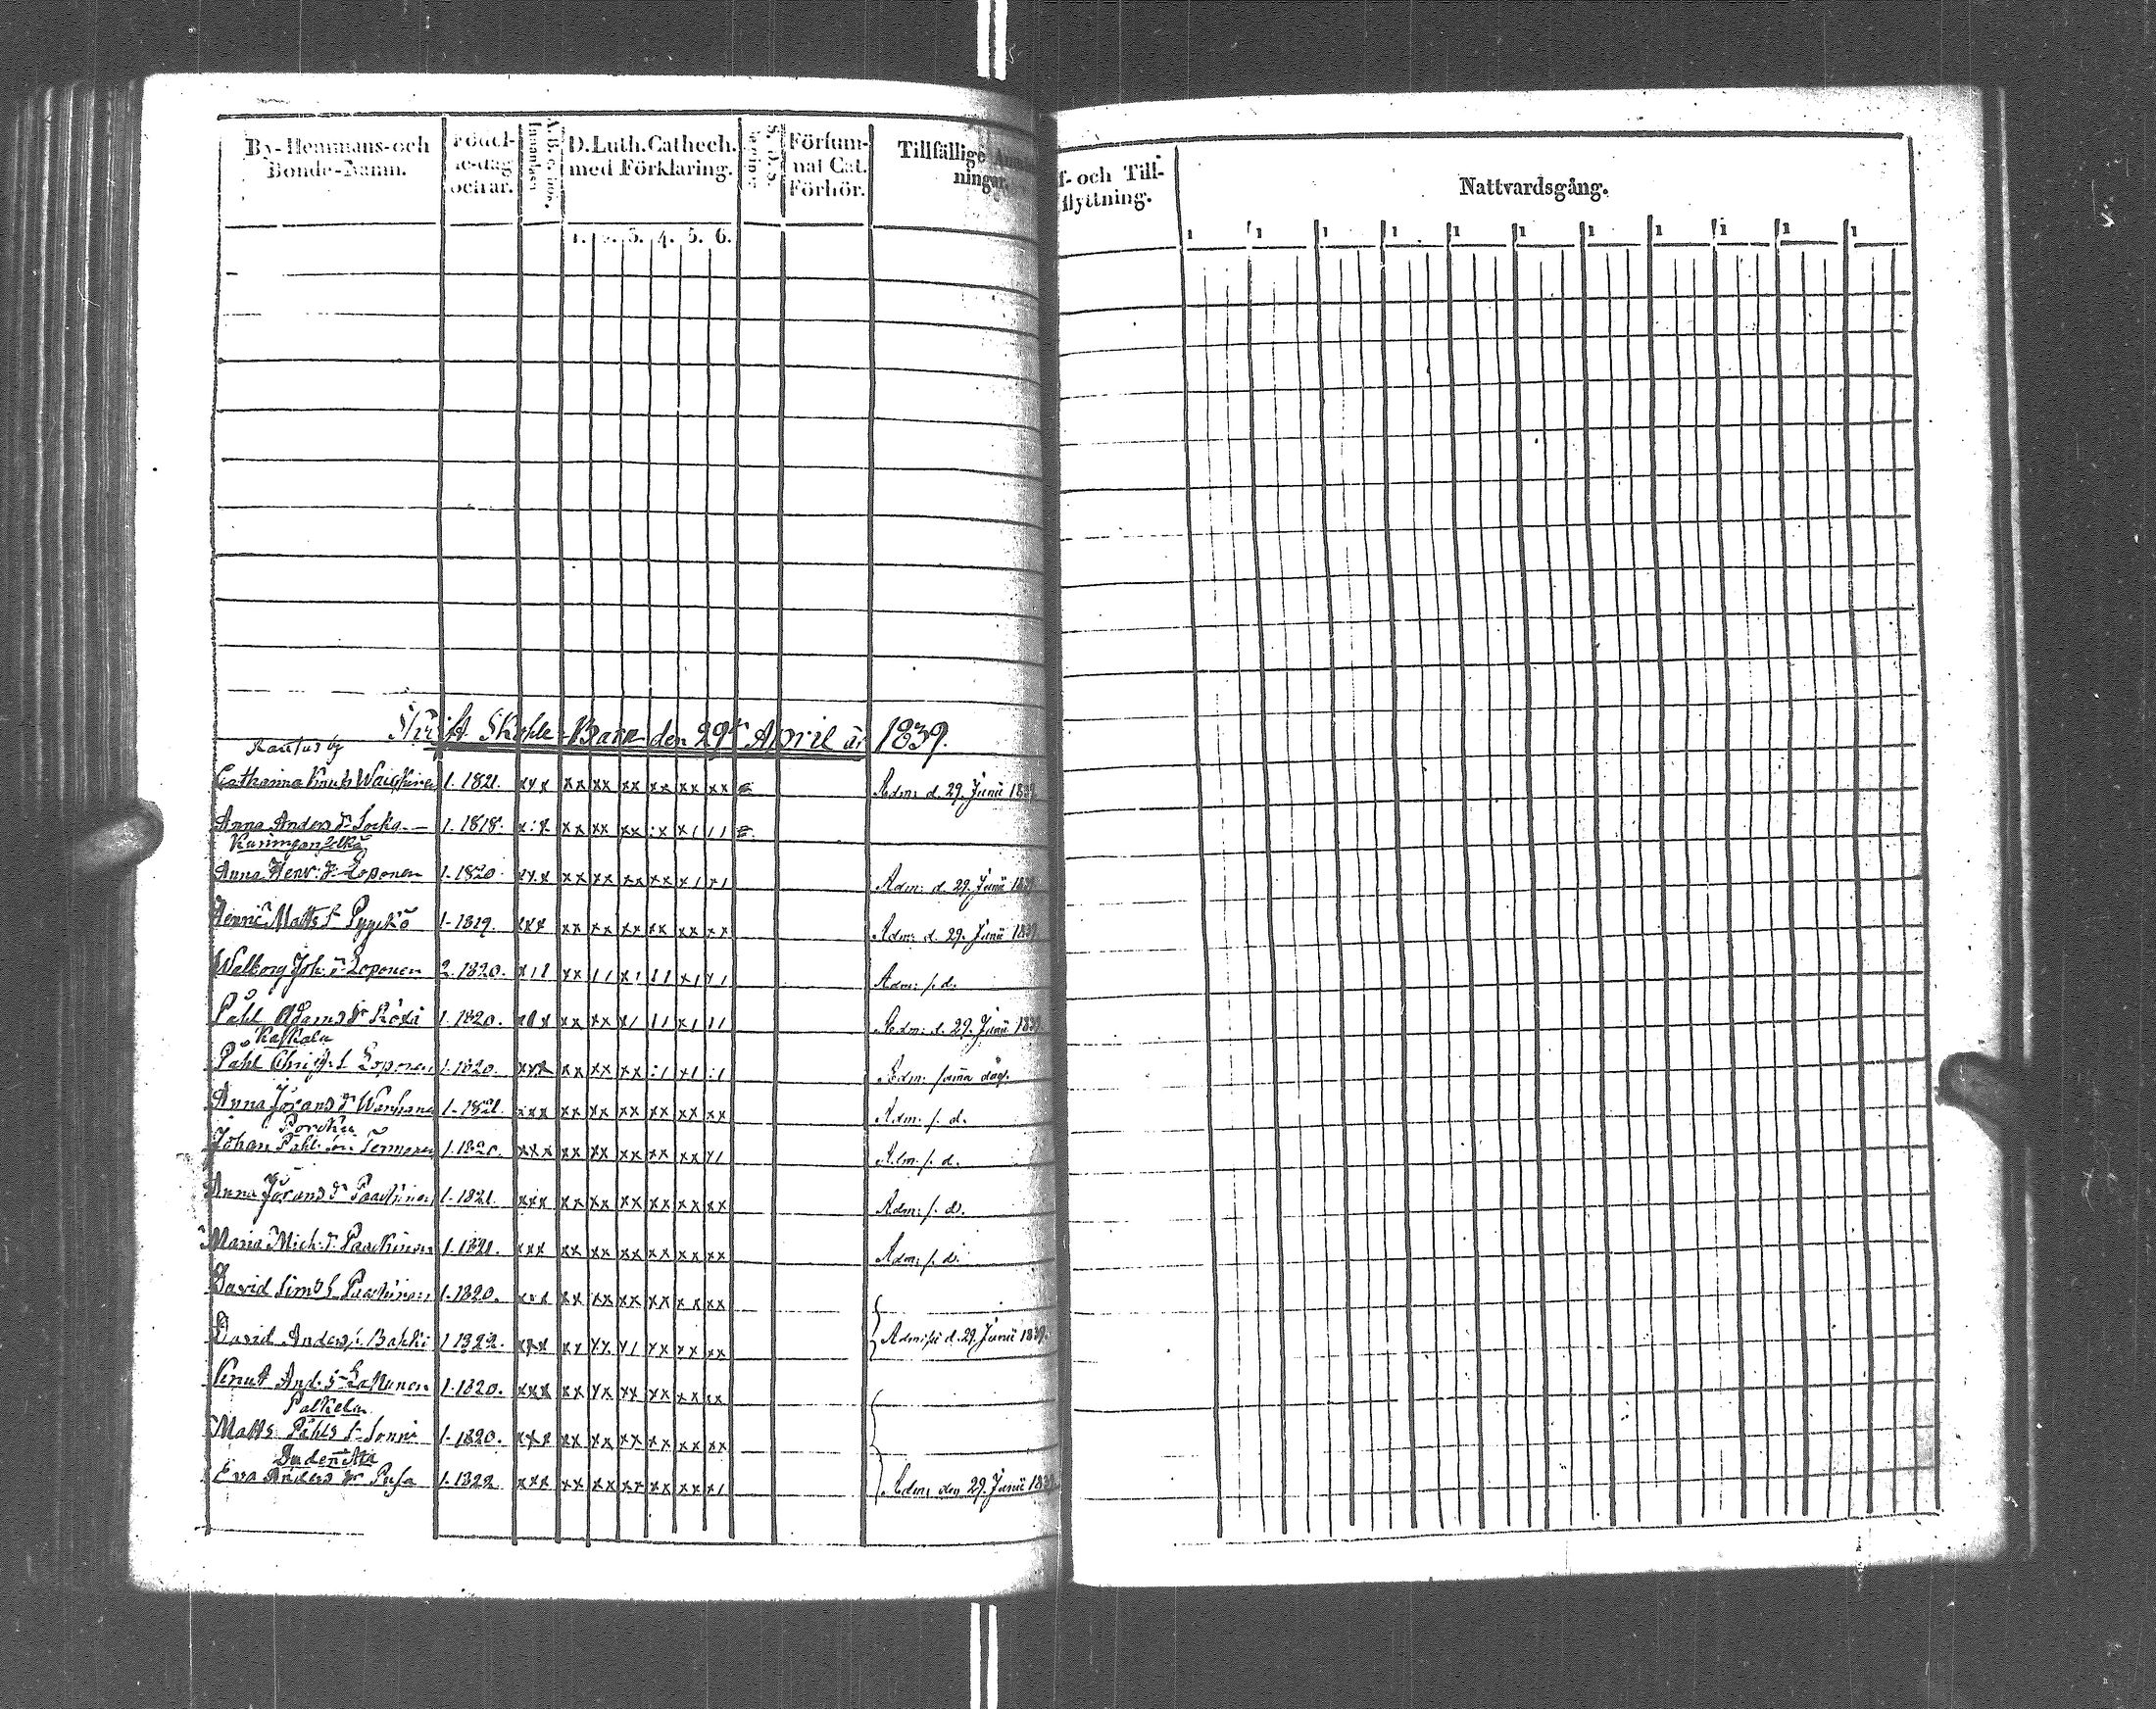 By-Hemmans-och Bonde-Namn.
Födel-se-dag och år.
D. Luth. Cathech. med Förklaring.
Försum-nat Cat. Förhör.
Tillfällige Anmärk-ningar.
f- och Till-flyttning.
Nattvardsgång.
1. 2. 3. 4. 5. 6.
1 1 1 1 1 1 1 1 1 1 1
Skrift Skole-Barn den 29de April år 1839.
Rautus by
Catharina Knuts 1. 1821. xxx xx xx xx xx xx xx Adm. d. 29. Junii 1839
Anna Anders dr Socka 1. 1818. x:x xx xx xx :x x1 11
Anna Henr. dr Loponen 1. 1820. xxx xx xx xx xx x1 x1 Adm. d. 29. Junii 1839
Henric Matts S. Pyyckö 1. 1819. xxx xx xx xx xx xx xx Adm. d. 29. Junii 1839
Walborg Joh. dr Loponen 2. 1820. x11 xx 11 x1 11 x1 x1 Adm: s. d.
Påhl Adams Sr Köxi 1. 1820. xxx xx xx x1 11 x1 11 Adm. d. 29. Junii 1839
Kaskala
Påhl Christ. S. Loponen 1. 1820. xxx xx xx xx :1 x1 :1 Adm. samma dag.
Anna Jörans dr 1. 1821. xxx xx xx xx xx xx xx Adm. s. d.
Porcku
Johan Påhls son Termonen 1. 1820. xxx xx xx xx xx xx x1 Adm. s. d.
Anna Jörans dr Paackinen 1. 1821. xxx xx xx xx xx xx xx Adm: s. d.
Maria Mich. dr Paackinen 1. 1821. xxx xx xx xx xx xx xx Adm. s. d.
David Sims S. Paackinen 1. 1820. xxx xx xx xx xx xx xx
David Anders S. Backi 1 1822. xxx xx xx x1 xx xx xx Admiss d. 29. Junii 1839.
Knut And. S. Lattunen 1. 1820. xxx xx xx xx xx xx xx
Palkela
Matts Påhls S. Sonni 1. 1820. xxx xx xx xx xx xx xx
Eva Anders dr Pusa 1. 1822 xxx xx xx xx xx xx x1 Adm. den 29. Junii 1839